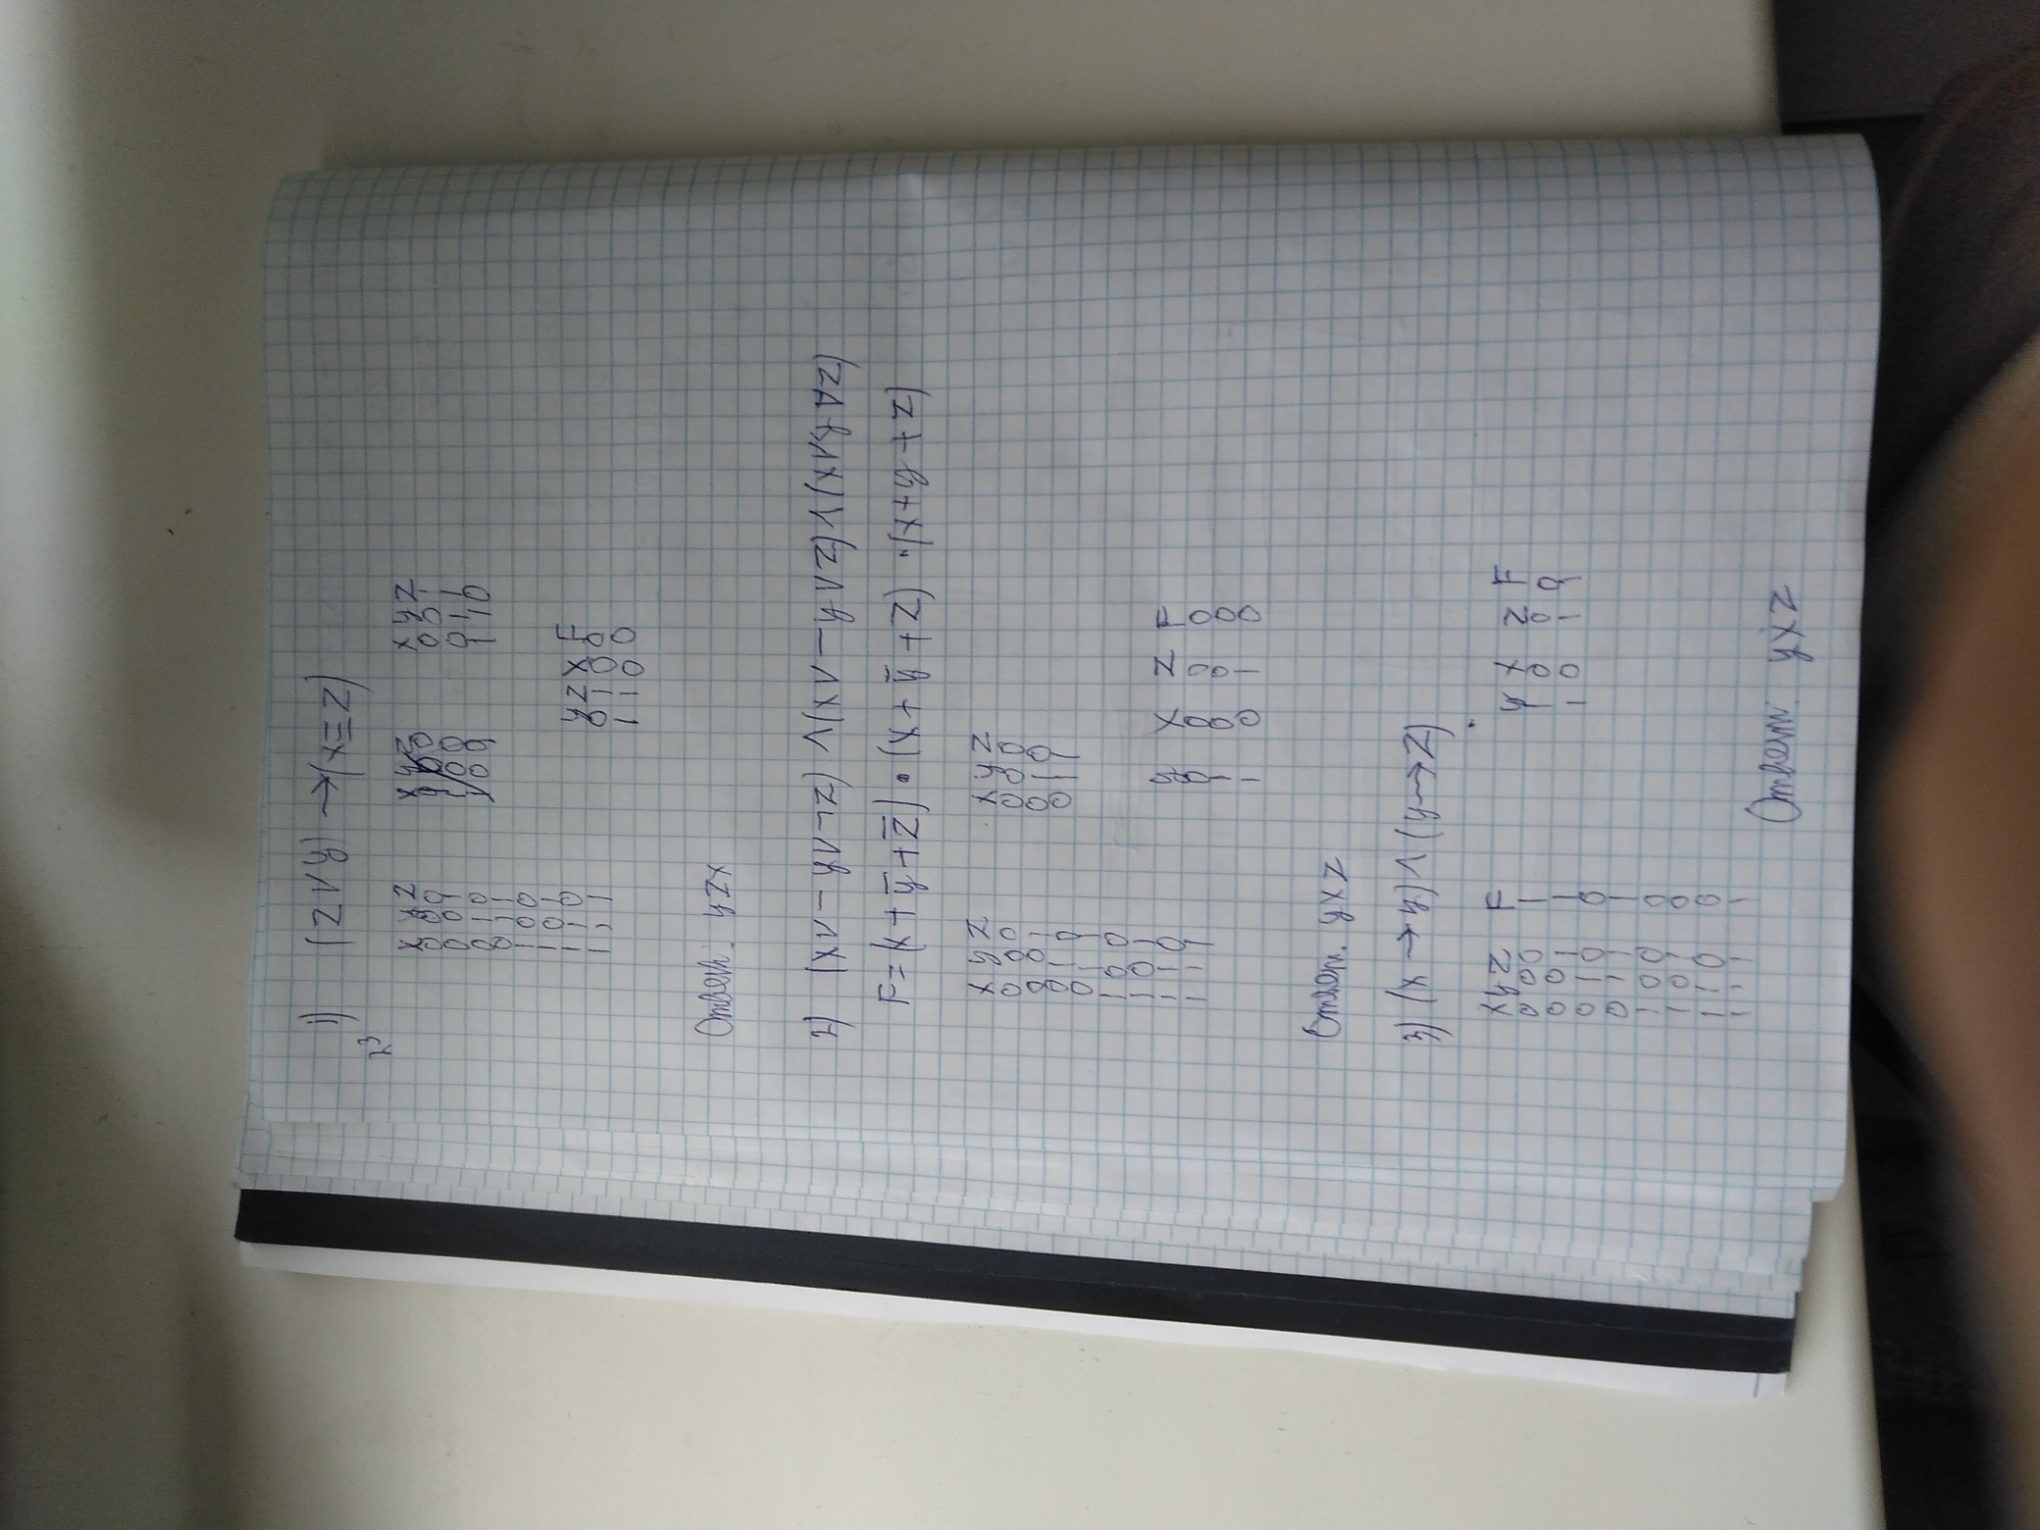 1) (Z ∨ y) → (x ≡ Z)
2³
x y z
0 0 0
0 0 1
0 1 0
0 1 1
1 0 0
1 0 1
1 1 0
1 1 1
x y z
0 0 1
0 1 1
1 1 0
y z x F
0 1 0 0
1 1 0 0
Ответ: yzx
2) (x ∧ ¬y ∧ ¬z) ∨ (x ∧ ¬y ∧ z) ∨ (x ∧ y ∧ z)
F = (x + ȳ + z̄) · (x + ȳ + z) · (x + y + z)
x y z
0 0 0
0 0 1
0 1 0
0 1 1
1 0 0
1 0 1
1 1 0
1 1 1
x y z
0 0 0
0 1 0
0 1 1
y x z F
0 0 0 0
1 0 0 0
1 0 1 0
Ответ. yxz
3) (x → y) ∧ (y → z)
x y z F
0 0 0 1
0 0 1 1
0 1 0 0
0 1 1 1
1 0 0 0
1 0 1 0
1 1 0 0
1 1 1 1
y x z F
1 0 0 0
1 0 1 1
Ответ: yxz